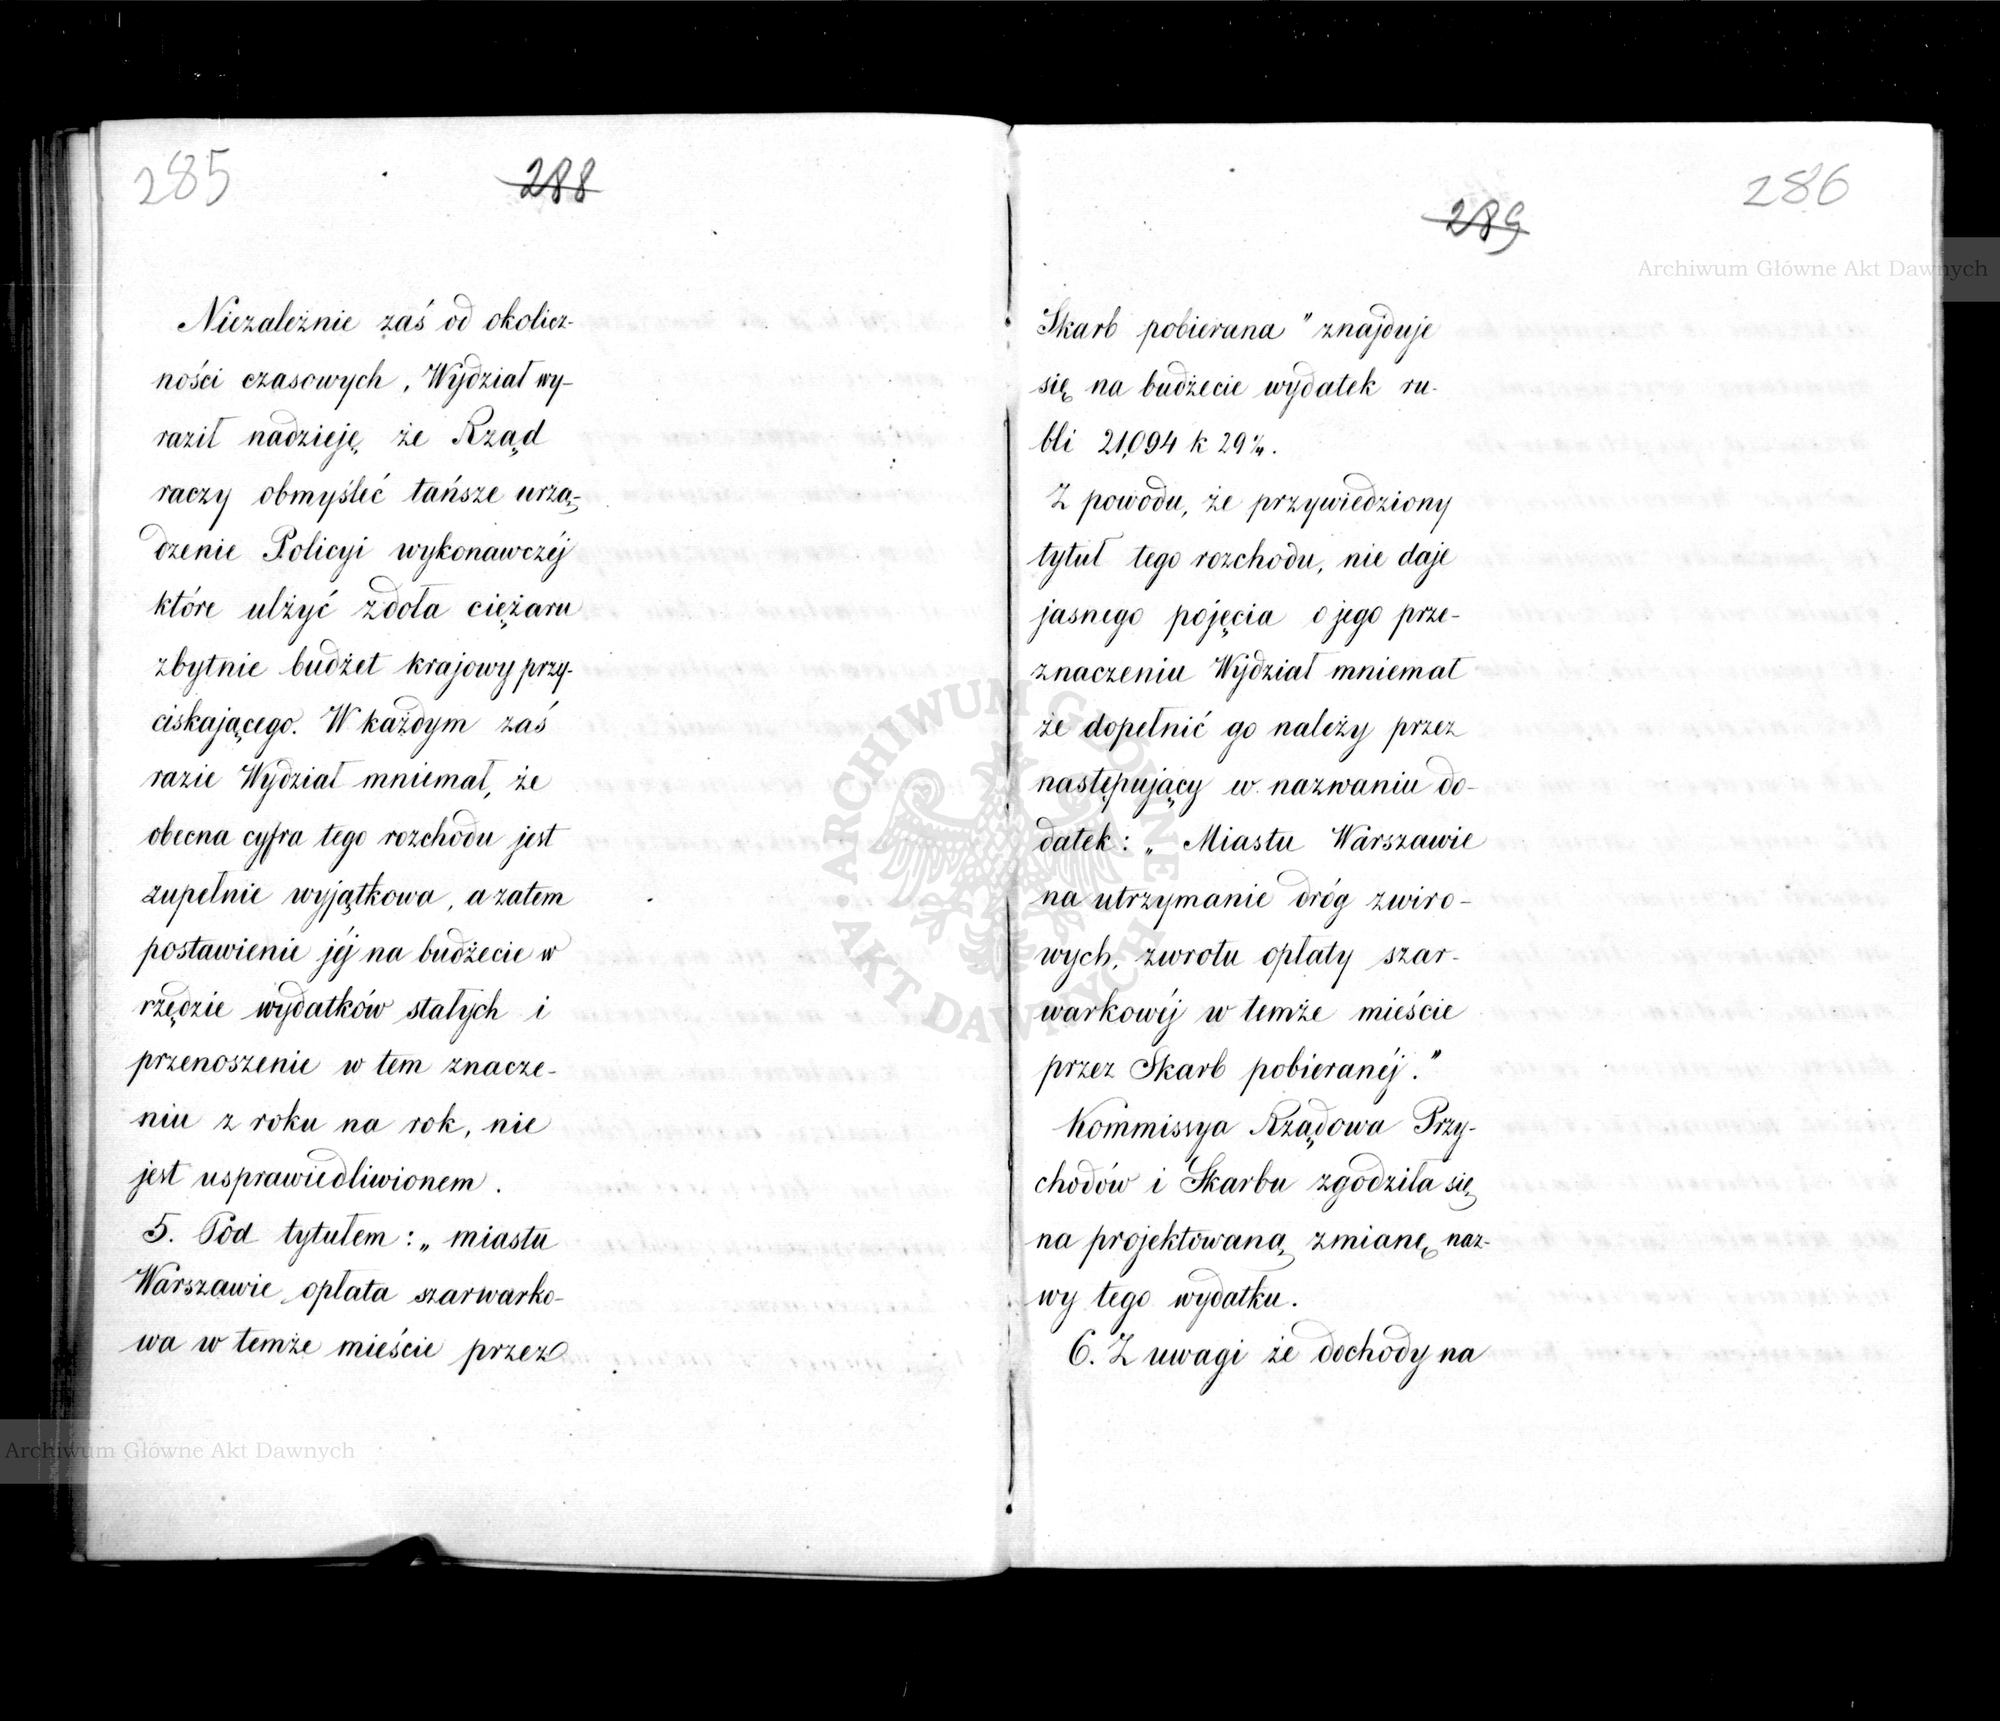 285
288
Niezależnie zaś od okolicz-
ności czasowych, Wydział wy-
raził nadzieję, że Rząd
raczy obmyśleć tańsze urzą-
dzenie Policyi wykonawczéj
które ulżyć zdoła ciężaru
zbytnie budżet krajowy przy-
ciskającego. W każdym zaś
razie Wydział mniemał, że
obecna cyfra tego rozchodu jest
zupełnie wyjątkowa, a zatem
postawienie jéj na budżecie w
rzędzie wydatków stałych i
przenoszenie w tem znacze-
niu z roku na rok, nie
jest usprawiedliwionem.
5. Pod tytułem: „miastu
Warszawie opłata szarwarko-
wa w temże mieście przez
286
289
Skarb pobierana" znajduje
się na budżecie wydatek ru-
bli 21,094 k 29
Z powodu, że przywiedziony
tytuł tego rozchodu, nie daje
jasnego pojęcia o jego prze-
znaczeniu Wydział mniemał
że dopełnić go należy przez
następujący w nazwaniu do-
datek: „Miastu Warszawie
na utrzymanie dróg zwiro-
wych, zwrotu opłaty szar-
warkowéj w temże mieście
przez Skarb pobieranéj."
Kommissya Rządowa Przy-
chodów i Skarbu zgodziła się
na projektowaną zmianę naz-
wy tego wydatku.
6. Z uwagi że dochody na
Archiwum Główne Akt Dawnych
Archiwum Główne Akt Dawnych
ARCHIWUM GŁÓWNE AKT DAWNYCH